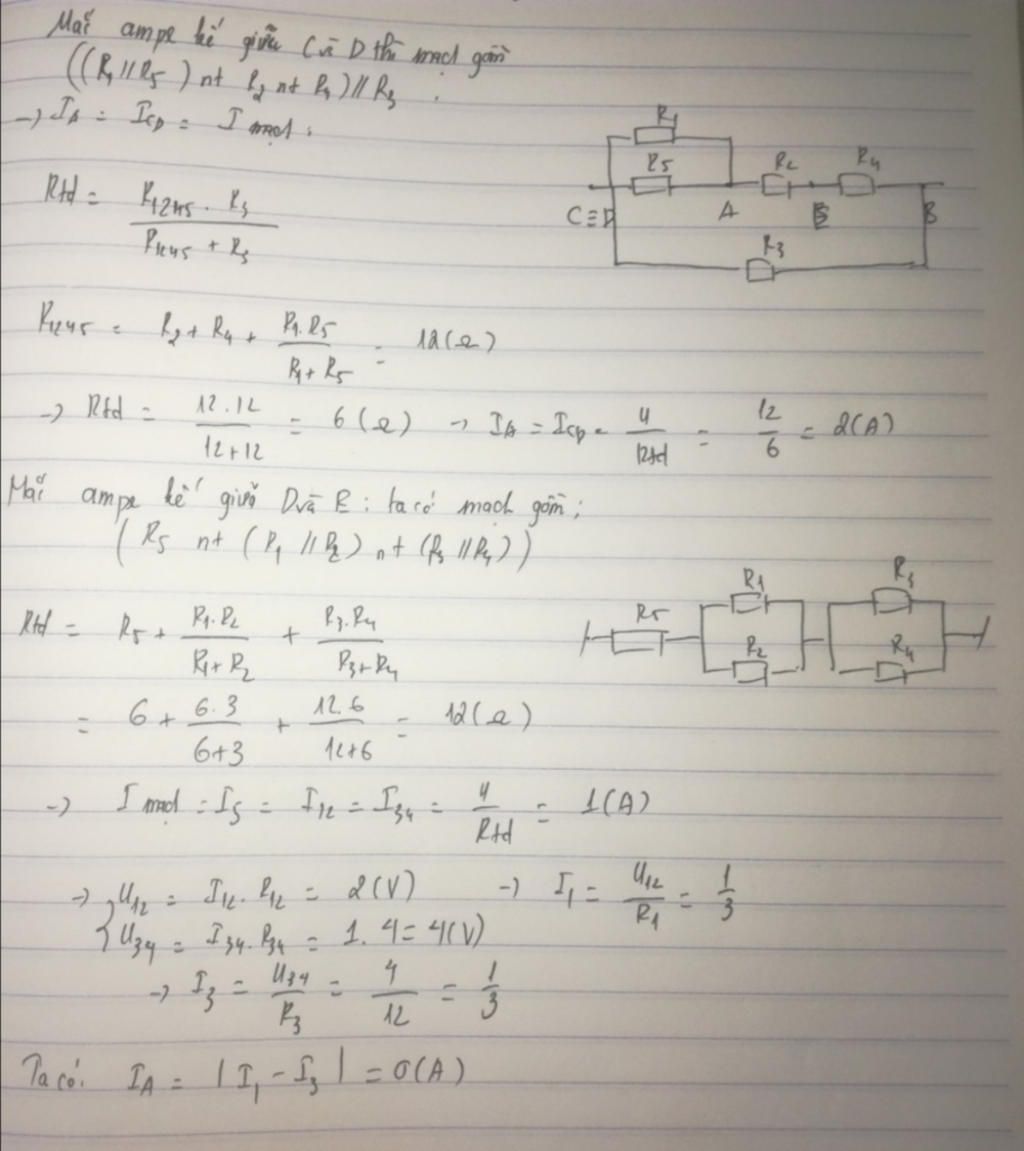 Mắc ampe kế giữa C và D thì mạch gồm
((R1 // R5) nt R2 nt R4) // R3.
-> IA = ICD = I mạch.
R1
R5
R2
R4
C≡D
A
E
B
R3
Rtđ = R1245 . R3 / R1245 + R3
R1245 = R2 + R4 + R1.R5 / R1+R5 = 12(Ω)
-> Rtđ = 12.12 / 12+12 = 6(Ω) -> IA = ICD = U / Rtđ = 12 / 6 = 2(A)
Mắc ampe kế giữa D và E : ta có mạch gồm:
(R5 nt (R1 // R2) nt (R3 // R4))
R5
R1
R2
R3
R4
Rtđ = R5 + R1.R2 / R1+R2 + R3.R4 / R3+R4
= 6 + 6.3 / 6+3 + 12.6 / 12+6 = 12(Ω)
-> I mạch = I5 = I12 = I34 = U / Rtđ = 1(A)
-> { U12 = I12.R12 = 2(V) -> I1 = U12 / R1 = 1/3
U34 = I34.R34 = 1.4 = 4(V)
-> I3 = U34 / R3 = 4 / 12 = 1/3
Ta có: IA = |I1 - I3| = 0(A)